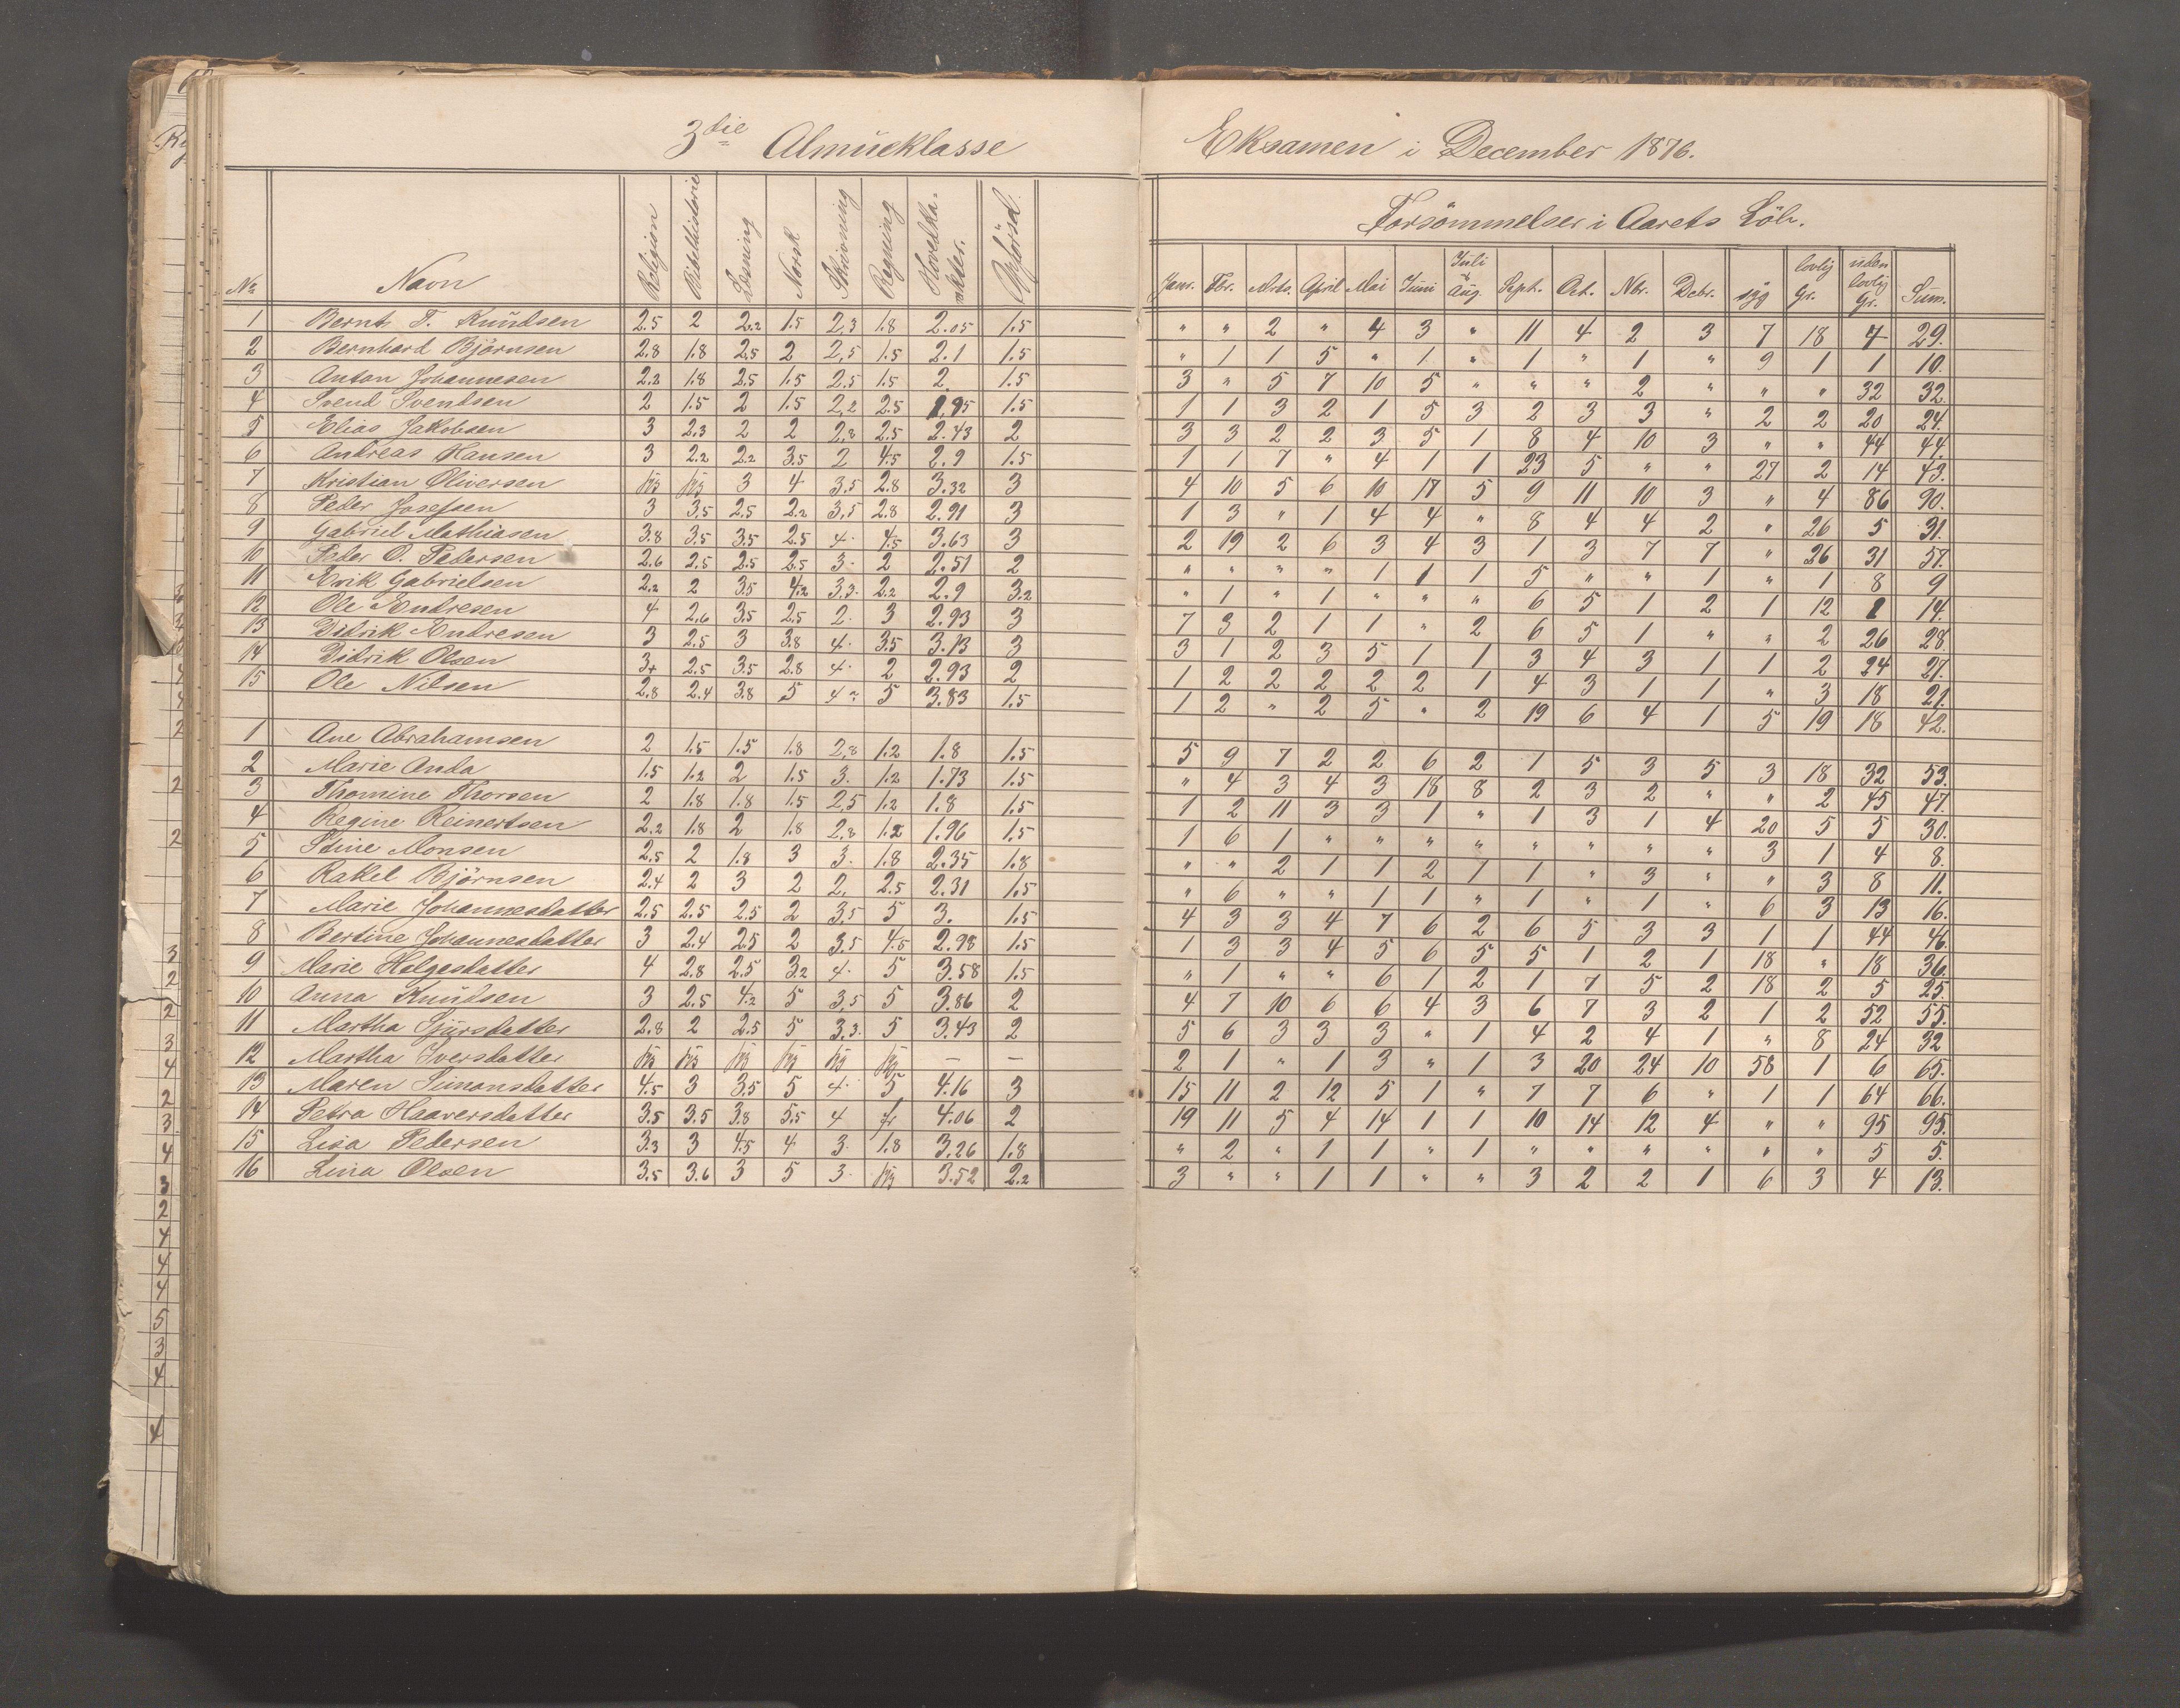 3die Almueklasse
No Navn Religion Bibelhistorie Læsning Norsk Skrivning Regning Hovedkarakter. Opförsel.
1 Bernt T. Knudsen 2.5 2 2.2 1.5 2,3 1.8 2.05 1.5
2 Bernhard Björnsen 2.8 1.8 2.5 2 2,5 1.5 2.1 1.5
3 Anton Johannesen 2.2 1.8 2.5 1.5 2.5 1.5 2. 1.5
4 Svend Svendsen 2 1.5 2 1.5 2,2 2.5 1,95 1.5
5 Elias Jakobsen 3 2.3 2 2 2,8 2.5 2.43 2
6 Andreas Hansen 3 2.2 2.2 3.5 2 4.5 2.9 1.5
7 Kristian Oliversen 3 4 3,5 2.8 3.32 3
8 Peder Josefsen 3 3.5 2.5 2.2 3,5 2.8 2.91 3
9 Gabriel Mathiasen 3.8 3.5 3.5 2.5 4. 4.5 3.63 3
10 Peder O. Pedersen 2.6 2.5 2.5 2.5 3. 2 2.51 2
11 Erik Gabrielsen 2.2 2 3.5 4.2 3.3. 2.2 2.9 3.2
12 Ole Endresen 4 2,6 3.5 2.5 2. 3 2.93 3
13 Didrik Endresen 3 2.5 3 3.8 4. 3.5 3.13 3
14 Didrik Olsen 3+ 2.5 3.5 2.8 4. 2 2.93 2
15 Ole Nilsen 2.8 2.4 3.8 5 4 5 3.83 1.5
1 Ane Abrahamsen 2 1.5 1.5 1.8 2,8 1.2 1.8 1.5
2 Marie Anda 1.5 1.2 2 1.5 3. 1.2 1.73 1.5
3 Thomine Thorsen 2 1.8 1.8 1.5 2,5 1.2 1.8 1.5
4 Regine Reinertsen 2.2 1.8 2 1.8 2,8 1.2 1.96 1.5
5 Stine Monsen 2.5 2 1.8 3 3. 1.8 2.35 1.8
6 Rakel Björnsen 2.4 2 3 2 2. 2.5 2.31 1.5
7 Marie Johannesdatter 2.5 2.5 2.5 2 3,5 5 3. 1.5
8 Bertine Johannesdatter 3 2.4 2.5 2 3,5 4.5 2.98 1.5
9 Marie Helgesdatter 4 2.8 2.5 3.2 4. 5 3.58 1.5
10 Anna Knudsen 3 2.5 4.2 5 3,5 5 3.86 2
11 Martha Sjursdatter 2.8 2 2.5 5 3,3. 5 3.43 2
12 Martha Iversdatter — —
13 Maren Simonsdatter 4.5 3 3.5 5 4. 5 4.16 3
14 Petra Haaversdatter 3.5 3.5 3.8 5.5 4 4.06 2
15 Lisa Pedersen 3.3 3 4.5 4 3. 1.8 3,26 1.8
16 Lina Olsen 3.5 3.6 3 5 3. 3.52 2.2
Eksamen i December 1876.
Forsömmelser i Aarets Löb.
Janr. Fbr. Mrts. April Mai Juni Juli & Aug. Sept. Oct. Nbr. Debr. syg lovlig Gr. uden lovlig Gr. Sum.
" " 2 " 4 3 " 11 4 2 3 7 18 4 29.
" 1 1 5 " 1 " 1 " 1 " 9 1 1 10.
3 " 5 7 10 5 " " " 2 " " " 32 32.
1 1 3 2 1 5 3 2 3 3 " 2 2 20 24.
3 3 2 2 3 5 1 8 4 10 3 " " 44 44.
1 1 7 " 4 1 1 23 5 " " 27 2 14 43.
4 10 5 6 10 17 5 9 11 10 3 " 4 86 90.
1 3 " 1 4 4 " 8 4 4 2 " 26 5 31.
2 19 2 6 3 4 3 1 3 7 7 " 26 31 57.
" " " " 1 1 1 5 " " 1 " 1 8 9
" 1 " 1 " " " 6 5 1 2 1 12 1 14.
7 3 2 1 1 " 2 6 5 1 " " 2 26 28.
3 1 2 3 5 1 1 3 4 3 1 1 2 24 27.
1 2 2 2 2 2 1 4 3 1 1 " 3 18 21.
1 2 " 2 5 " 2 19 6 4 1 5 19 18 42.
5 9 7 2 2 6 2 1 5 3 5 3 18 32 53.
" 4 3 4 3 18 8 2 3 2 " " 2 45 47.
1 2 11 3 3 1 " 1 3 1 4 20 5 5 30.
1 6 1 " " " " " " " " 3 1 4 8.
" " 2 1 1 2 1 1 " 3 " " 3 8 11.
" 6 " " 1 1 " 1 " 1 " 6 3 13 16.
4 3 3 4 7 6 2 6 5 3 3 1 1 44 46.
1 3 3 4 5 6 5 5 1 2 1 18 " 18 36.
" 1 " " 6 1 2 1 7 5 2 18 2 5 25.
4 7 10 6 6 4 3 6 7 3 2 1 2 52 55.
5 6 3 3 3 " 1 4 2 4 1 " 8 24 32
2 1 " 1 3 " 1 3 20 24 10 58 1 6 65.
15 11 2 12 5 1 " 7 7 6 " 1 1 64 66.
19 11 5 4 14 1 1 10 14 12 4 " " 95 95.
" 2 " 1 1 " 1 " " " " " " 5 5.
3 " " 1 1 " " 3 2 2 1 6 3 4 13.